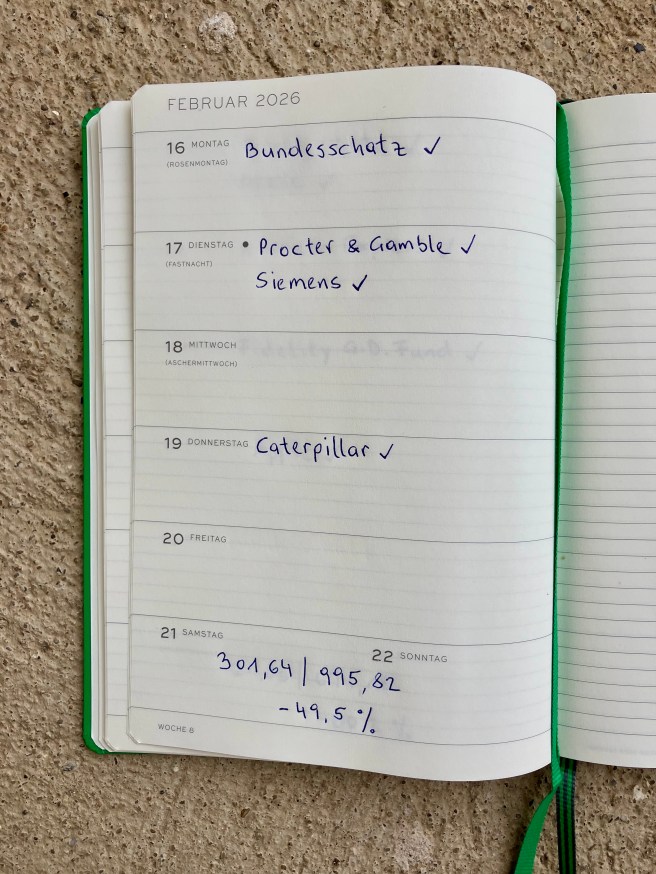 FEBRUAR 2026
16 MONTAG Bundesschatz ✓
(ROSENMONTAG)
17 DIENSTAG • Procter & Gamble ✓
(FASTNACHT)
Siemens ✓
18 MITTWOCH
(ASCHERMITTWOCH)
19 DONNERSTAG Caterpillar ✓
20 FREITAG
21 SAMSTAG
22 SONNTAG
301,64 | 995,82
-49,5 %
WOCHE 8